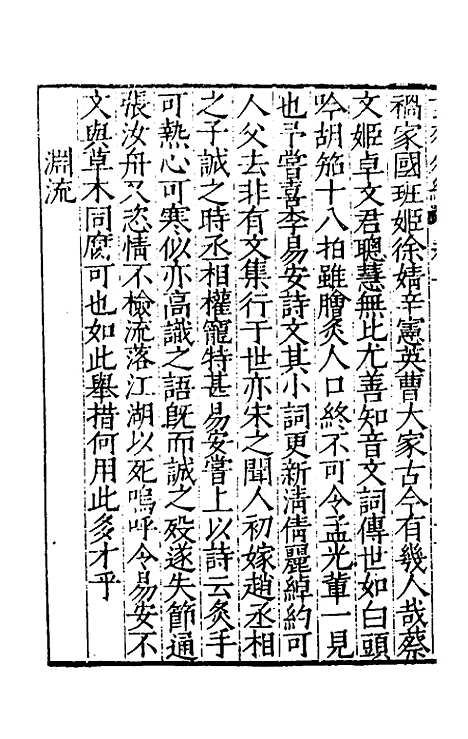 禍家國班姬徐婧辛憲英曹大家古今有幾人哉蔡
文姬卓文君聰慧無比尤善知音文詞傳世如白頭
吟胡笳十八拍雖膾炙人口終不可令孟光輩一見
也予嘗喜李易安詩文其小詞更新清倩麗綽約可
人父去非有文集行于世亦宋之聞人初嫁趙丞相
之子誠之時丞相權寵特甚易安嘗上以詩云炙手
可熱心可寒似亦高識之語旣而誠之殁遂失節通
張汝舟又恣情不檢流落江湖以死嗚呼令易安不
文與草木同腐可也如此舉措何用此多才乎
淵流